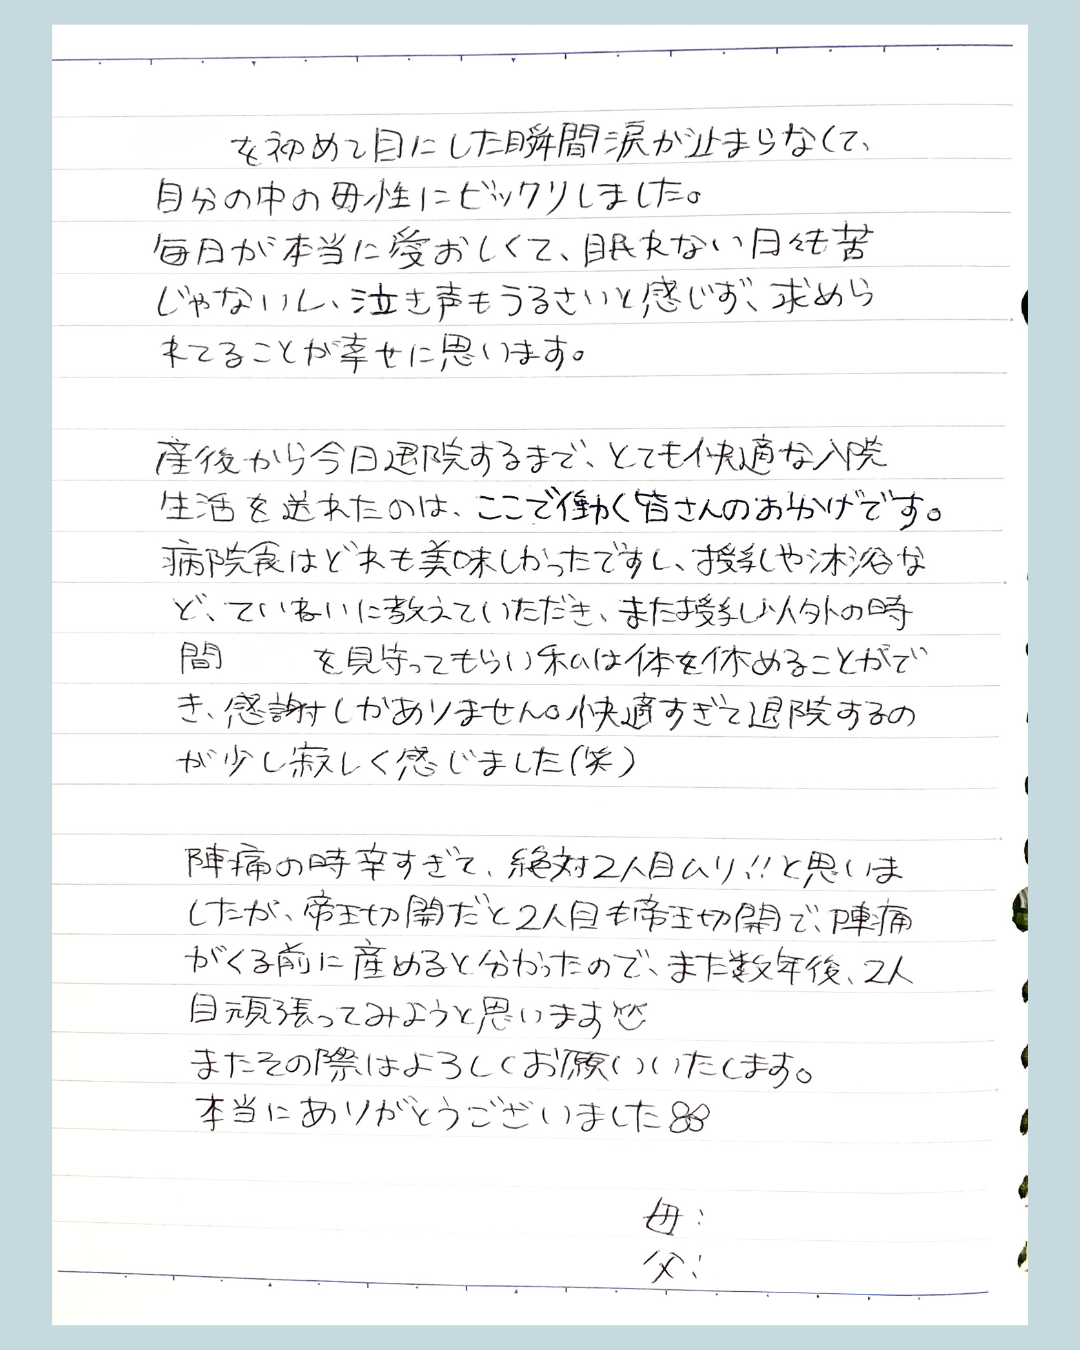 を初めて目にした瞬間涙が止まらなくて、
自分の中の母性にビックリしました。
毎日が本当に愛おしくて、眠れない日々も苦
じゃないし、泣き声もうるさいと感じず、求めら
れてることが幸せに思います。
産後から今日退院するまで、とても快適な入院
生活を送れたのは、ここで働く皆さんのおかげです。
病院食はどれも美味しかったですし、授乳や沐浴な
ど、ていねいに教えていただき、また授乳以外の時
間 を見守ってもらい私は体を休めることがで
き、感謝しかありません。快適すぎて退院するの
が少し寂しく感じました(笑)
陣痛の時辛すぎて、絶対2人目ムリ!!と思いま
したが、帝王切開だと2人目も帝王切開で、陣痛
がくる前に産めると分かったので、また数年後、2人
目頑張ってみようと思います
またその際はよろしくお願いいたします。
本当にありがとうございました
母:
父: